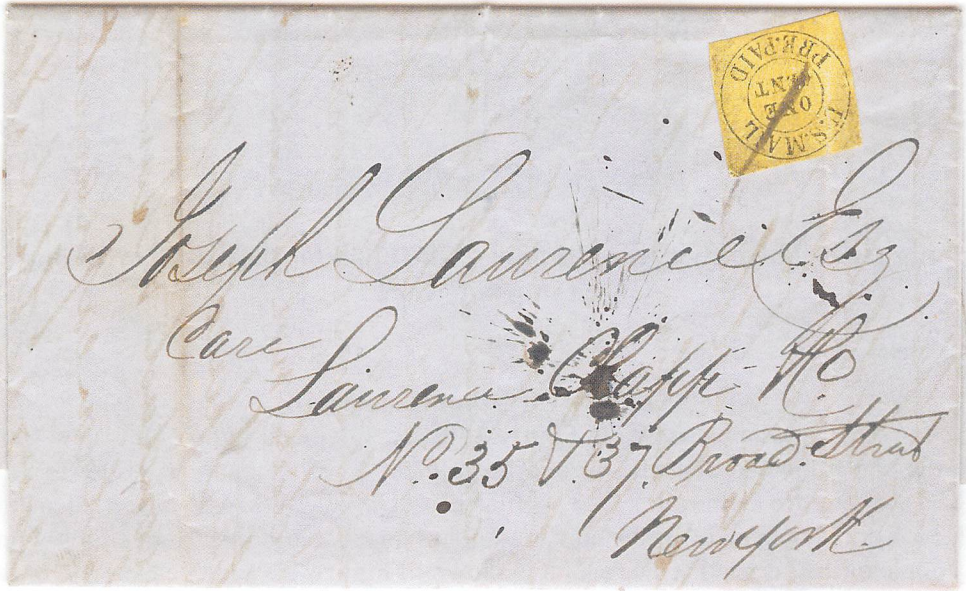 U.S.MAIL
PRE.PAID
ONE
CENT
Joseph Laurence Esq
Care
Laurence Clapp & Co
No. 35 & 37 Broad. Street
New York.